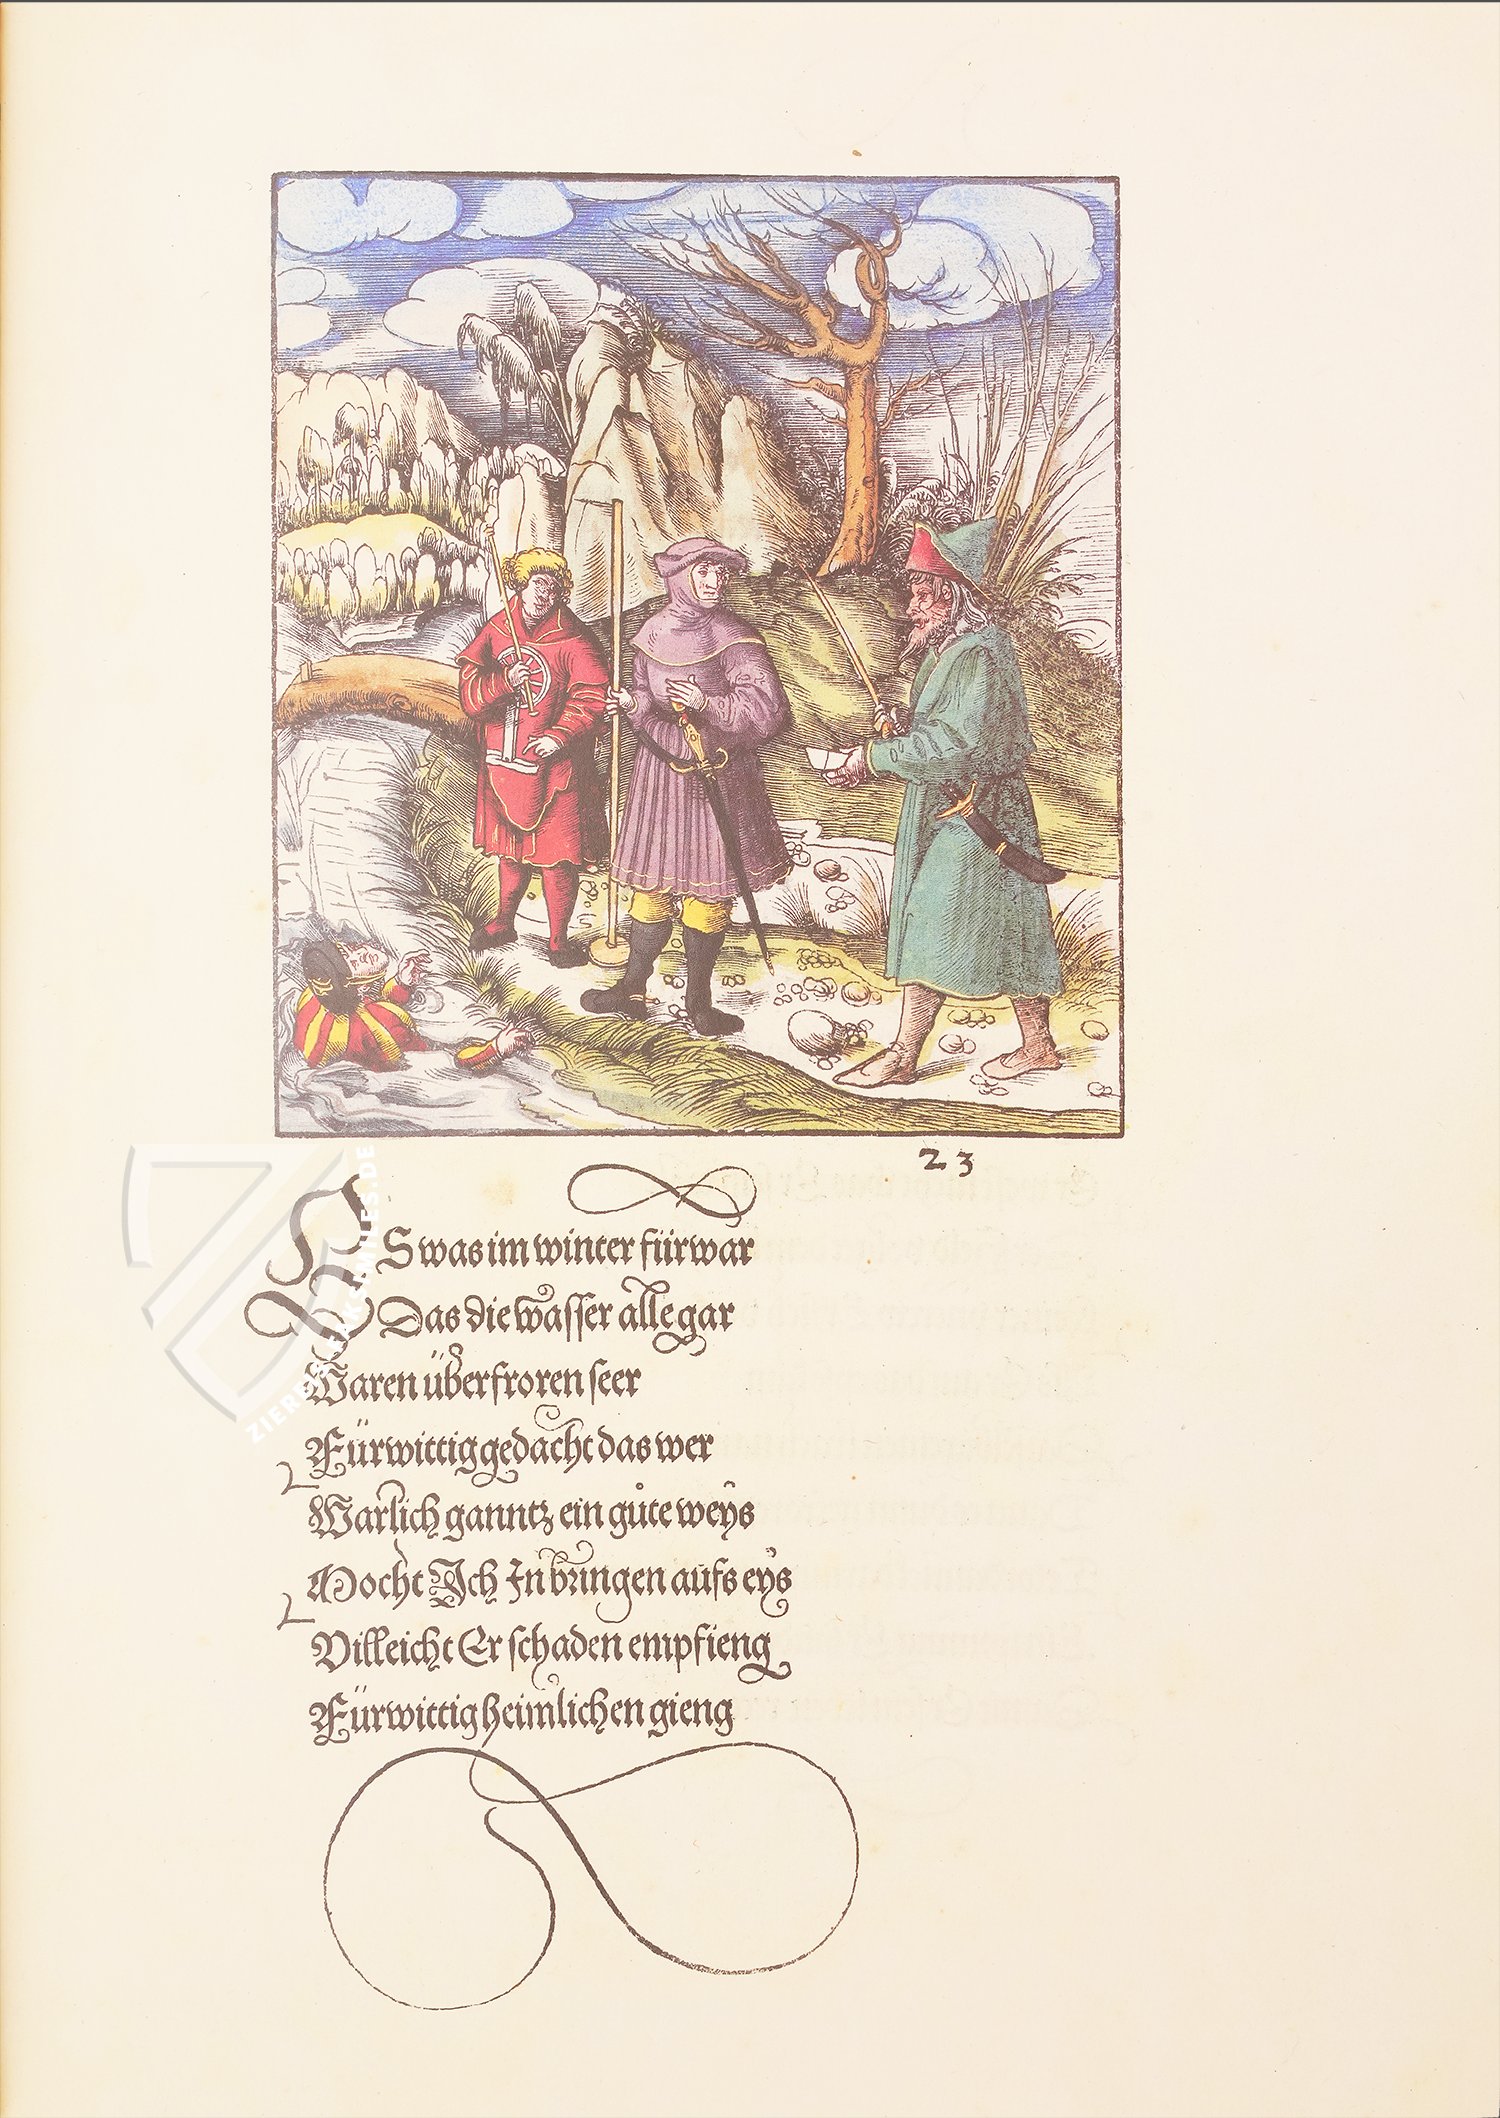 23
ES was im winter fürwar
Das die wasser alle gar
Waren überfroren seer
Fürwittig gedacht das wer
Warlich ganntz ein gůte weys
Mocht Ich In bringen aufs eys
Villeicht Er schaden empfieng
Fürwittig heimlichen gieng
ZIEREIS FAKSIMILES.DE